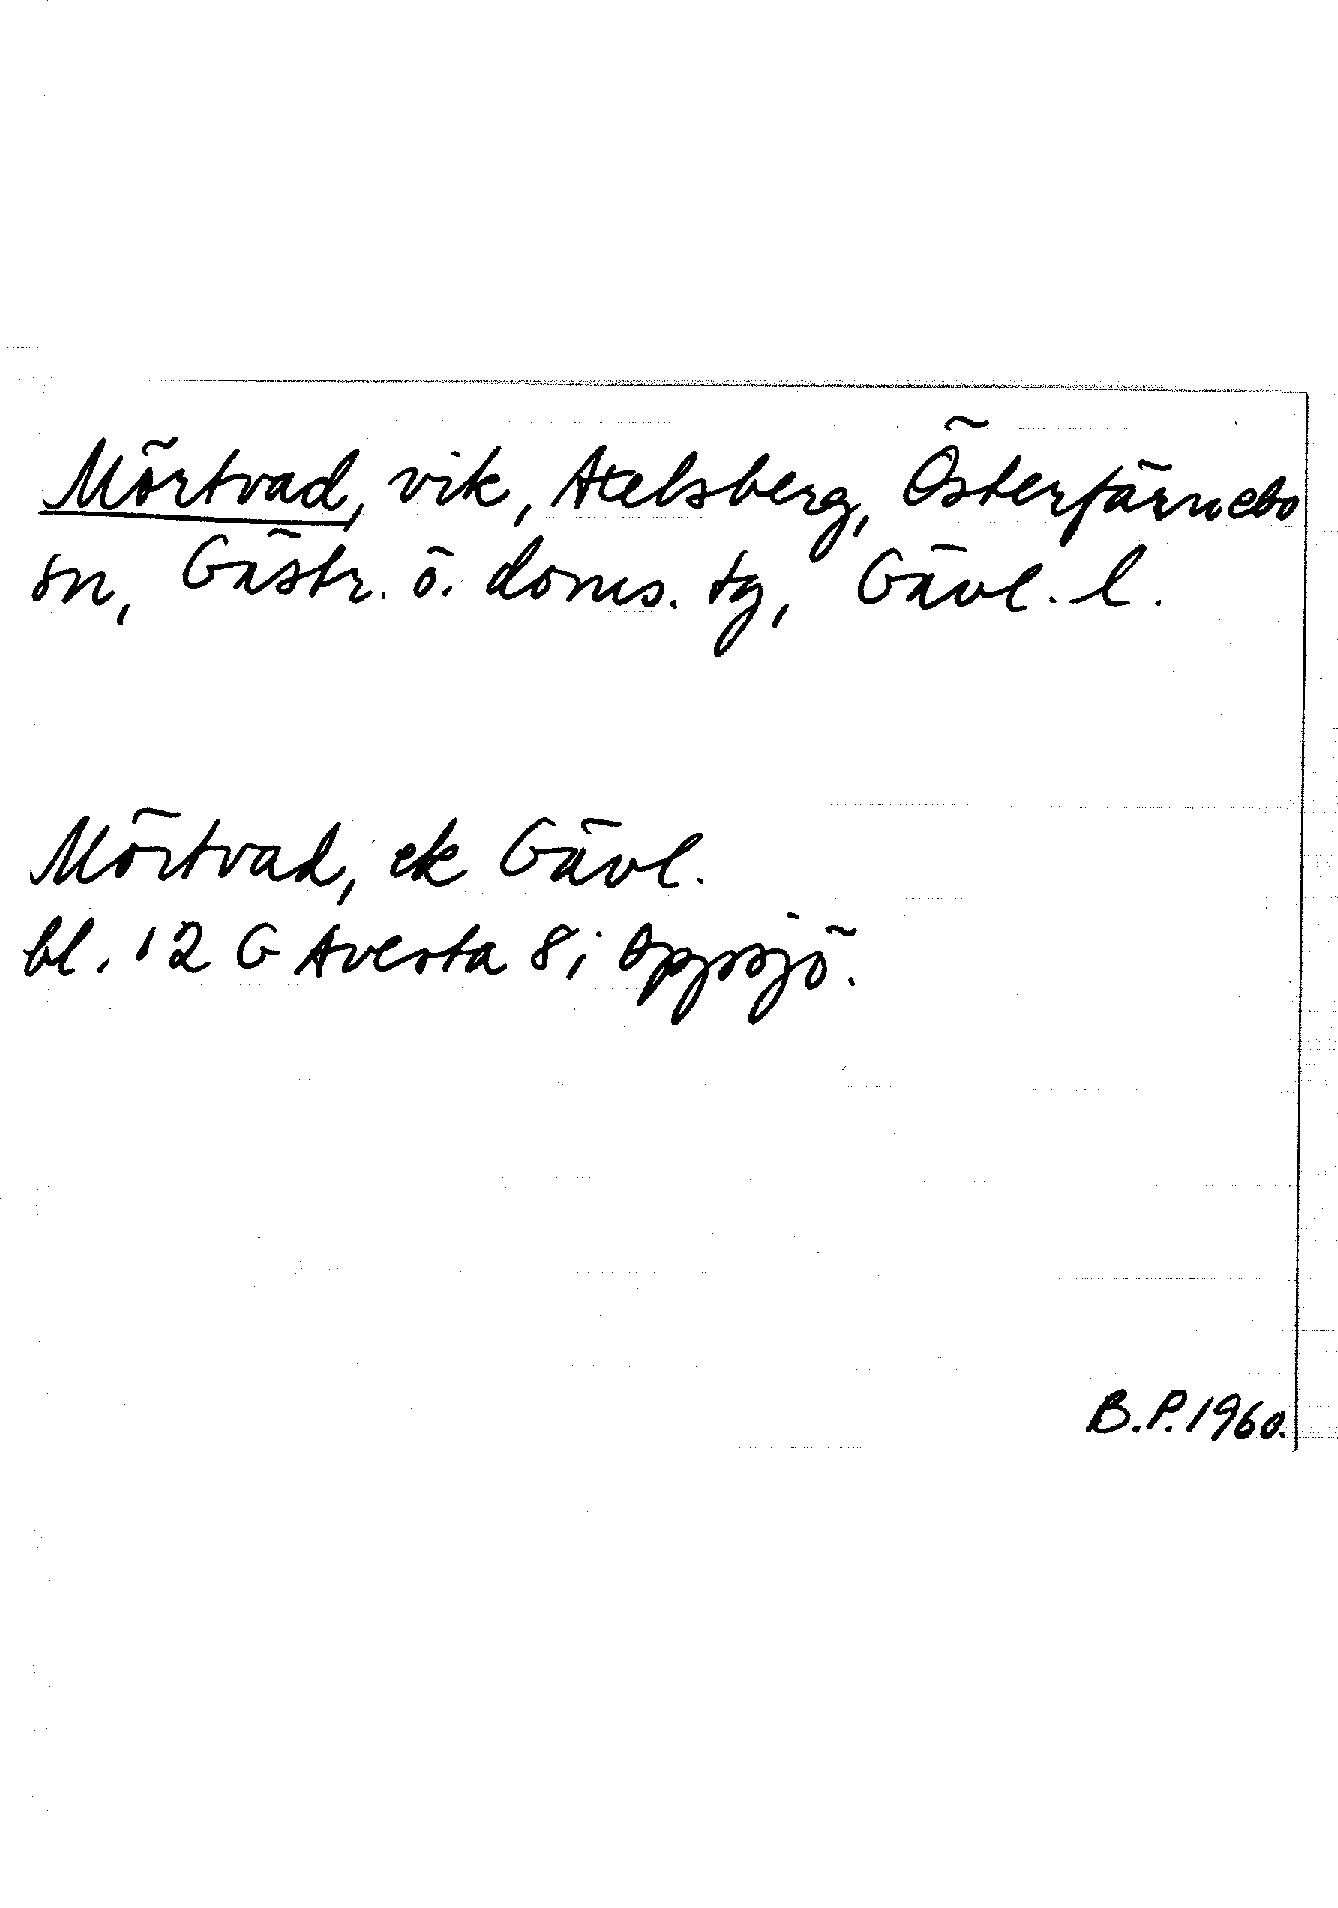 Mörtvad, vik, Atelsberg, Österfärnebo
sn, Gästr. ö. doms. tg, Gävl. l.
Mörtvad, ek Gävl.
bl. 12 G Avesta 8 i Oppsjö.
B.P. 1960.